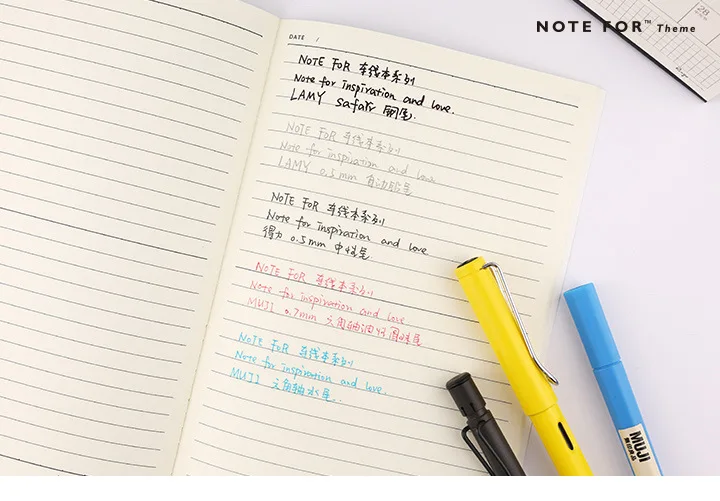 NOTE FOR™ Theme
28
DATE /
NOTE FOR 车线本系列
Note for inspiration and love.
LAMY safari 钢笔.
NOTE FOR 车线本系列
Note for inspiration and love
LAMY 0.5mm 自动铅笔
NOTE FOR 车线本系列
Note for inspiration and love
得力 0.5mm 中性笔
NOTE FOR 车线本系列
Note for inspiration and love
MUJI 0.7mm 六角轴油性圆珠笔
NOTE FOR 车线本系列
Note for inspiration and love.
MUJI 六角轴水笔.
MUJI
無印良品